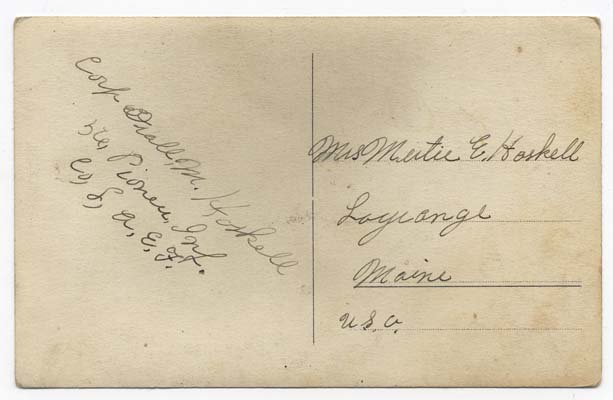 Corp M. Haskell
56, Pioneer Inf.
Co, A. E. F.
Mrs Mertie E. Haskell
Lagrange
Maine
U.S.A.